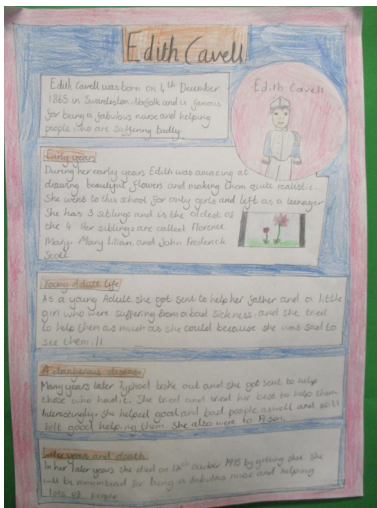 Edith Cavell
Edith Cavell was born on 4th December
1865 in Swardeston. Norfolk and is famous
for being a fabulous nurse and helping
people who are suffering badly.
Edith Cavell
Early years
During her early years Edith was amazing at
drawing beautiful flowers and making them quite realistic.
She went to this school for only girls and left as a teenager
She has 3 siblings and is the oldest of
the 4. Her siblings are called Florence
Mary. Mary Lilian, and John Frederick
Scott
Young Adult life
As a young Adult she got sent to help her father and a little
girl who were suffering from a bad sickness. and she tried
to help them as much as she could because she was sad to
see them ill
A dangerous disease
Many years later Typhoid broke out and she got sent to help
those who had it. She tried and tried her best to help them
Interestingly. she helped good and bad people aswell and still
felt good helping them. She also went to
Later years and death
In her later years she died on 12th 1915 by getting shot. She
will be remembered for being a fabulous nurse and helping
lots of people